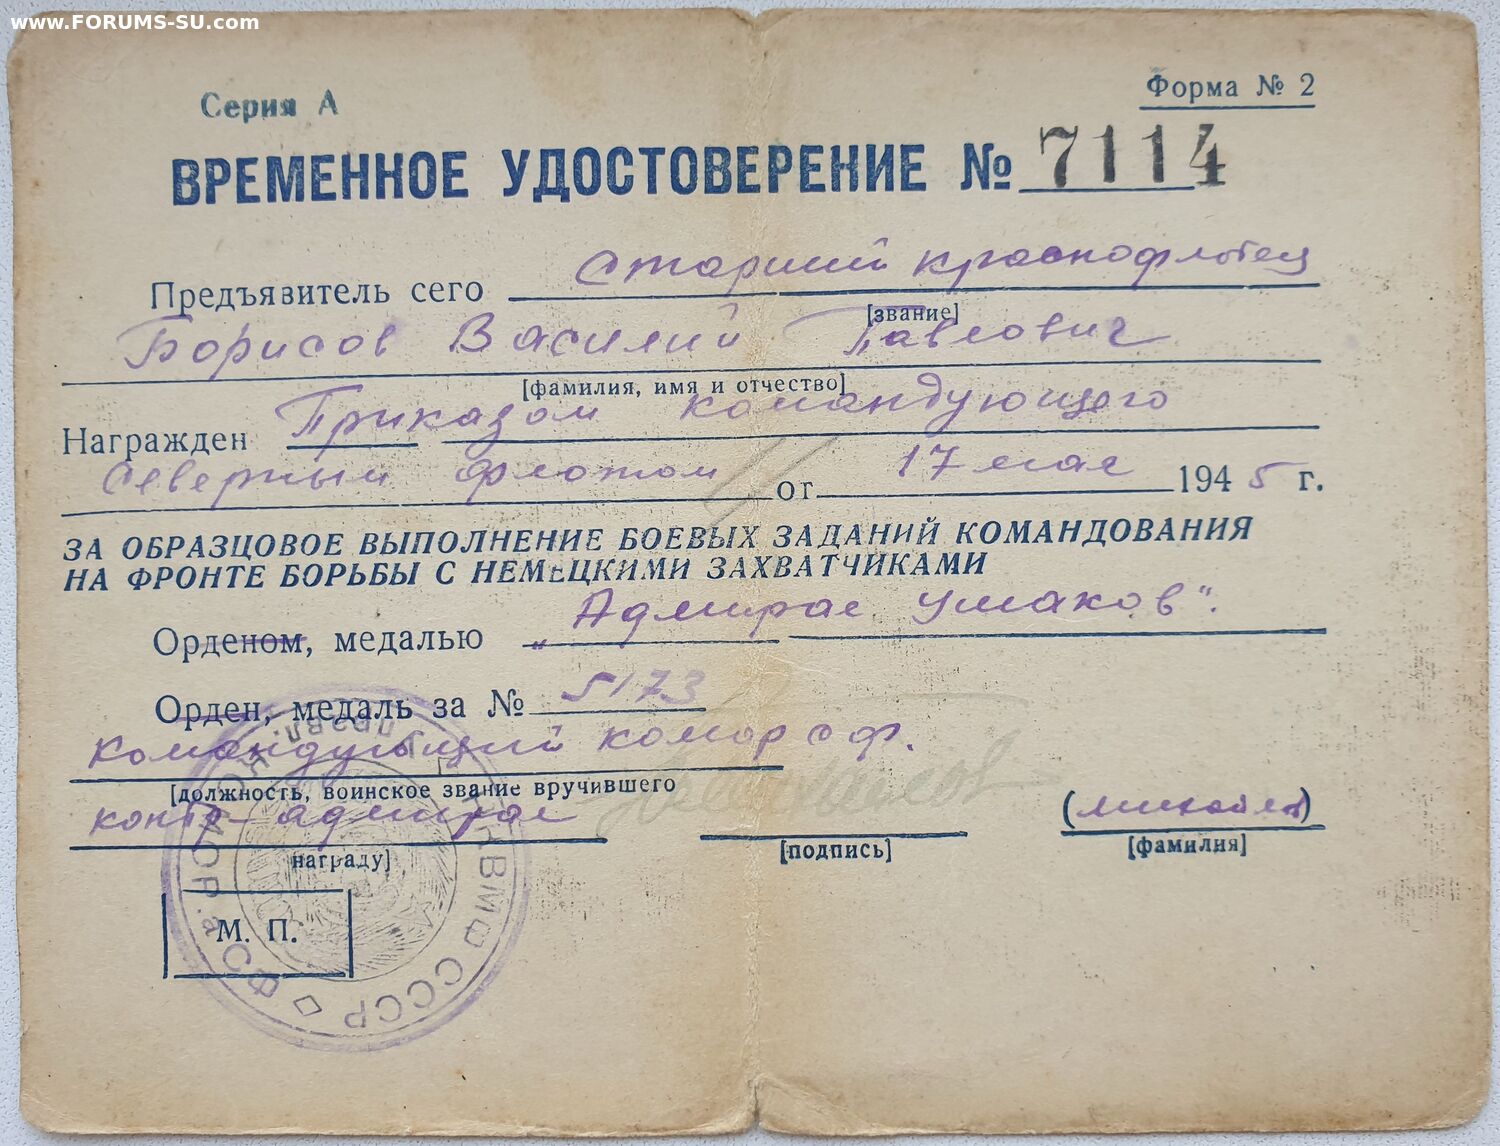 www.FORUMS-SU.com
Форма № 2
Серия А
ВРЕМЕННОЕ УДОСТОВЕРЕНИЕ № 7114
Предъявитель сего Старший краснофлотец
[звание]
Борисов Василий Павлович
[фамилия, имя и отчество]
Награжден Приказом командующего
Северным флотом от 17 мая 1945 г.
ЗА ОБРАЗЦОВОЕ ВЫПОЛНЕНИЕ БОЕВЫХ ЗАДАНИЙ КОМАНДОВАНИЯ
НА ФРОНТЕ БОРЬБЫ С НЕМЕЦКИМИ ЗАХВАТЧИКАМИ
Орденом, медалью „Адмирал Ушаков".
Орден, медаль за № 5173
командующий комор сф.
[должность, воинское звание вручившего
контр-адмирал (михайлов)
награду] [подпись] [фамилия]
М. П.
НВМФ СССР